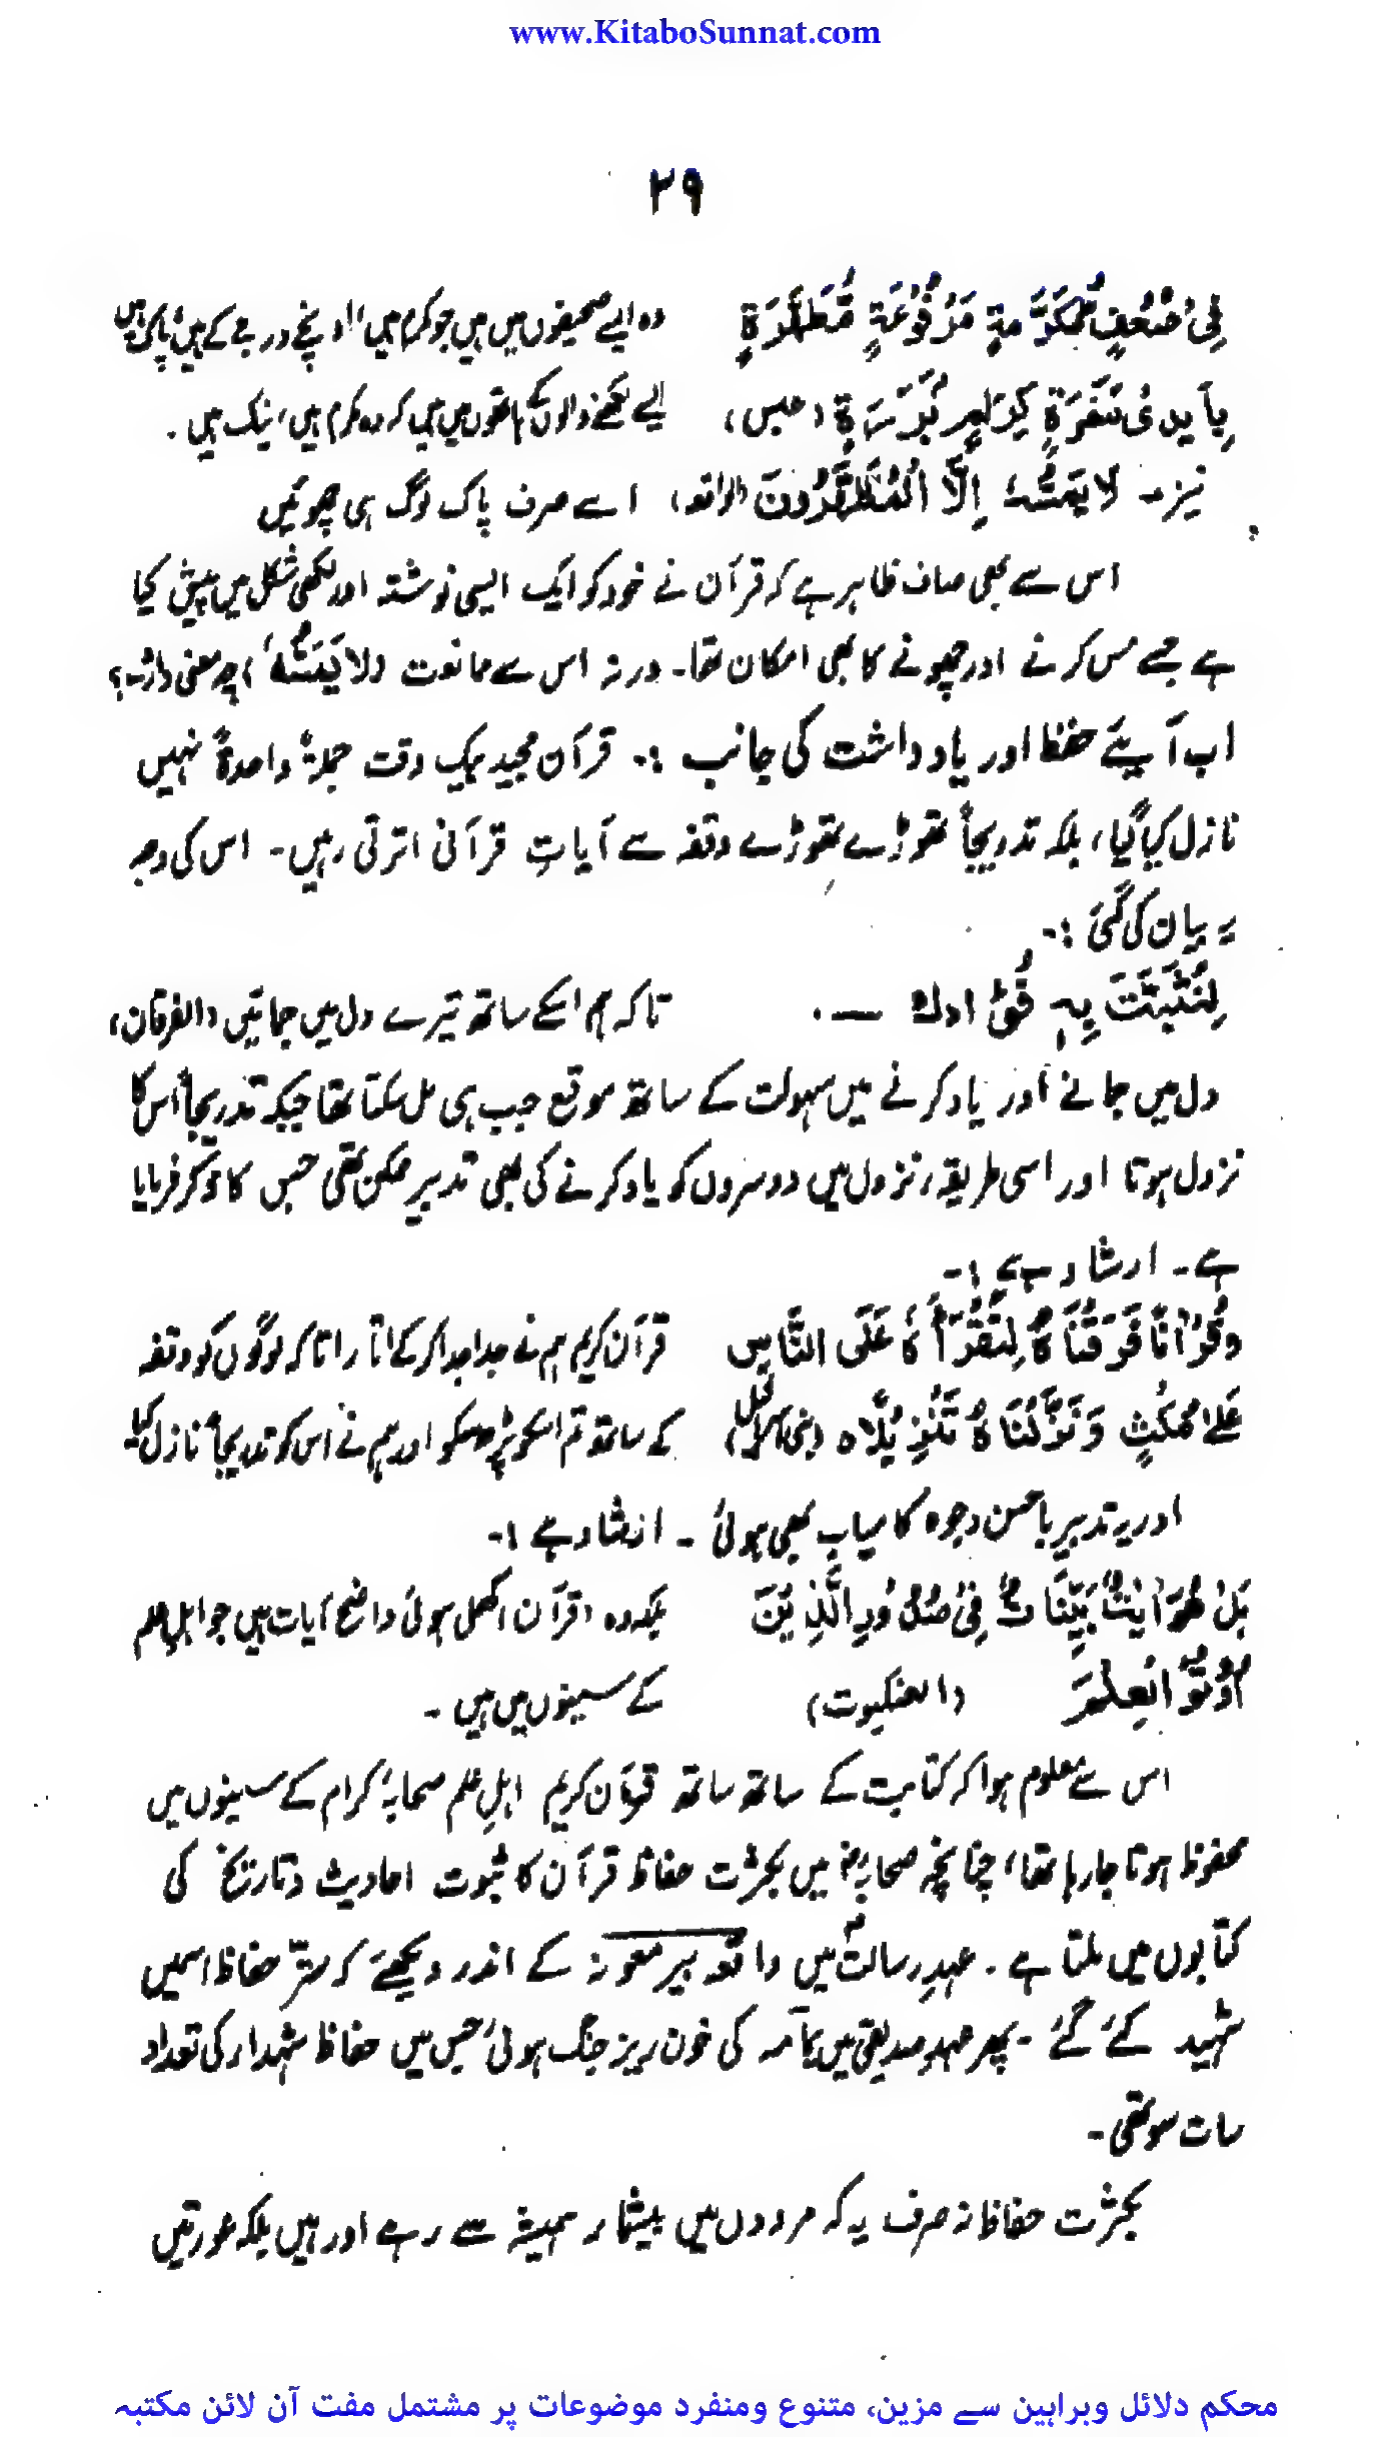 www.KitaboSunnat.com
۲۹
فِیْ صُحُفٍ مُّكَرَّمَةٍ مَرْفُوْعَةٍ مُّطَهَّرَةٍ وہ ایسے صحیفوں میں ہیں جو مکرم ہیں، اونچے درجے کے ہیں، پاک ہیں
بِاَیْدِیْ سَفَرَةٍ كِرَامٍ بَرَرَةٍ (عبس) ایسے لکھنے والوں کے ہاتھوں میں ہیں کہ وہ مکرم ہیں، نیک ہیں۔
نیز۔ لَا یَمَسُّهٗ اِلَّا الْمُطَهَّرُوْنَ (الواقعہ) اسے صرف پاک لوگ ہی چھوئیں
اس سے بھی صاف ظاہر ہے کہ قرآن نے خود کو ایک ایسی نوشتہ اور لکھی شکل میں پیش کیا
ہے جسے مس کرنے اور چھونے کا بھی امکان تھا۔ ورنہ اس سے ممانعت (لا یَمَسُّهٗ) چہ معنی دارد؟
اب آئیے حفظ اور یادداشت کی جانب :۔ قرآن مجید بیک وقت جملۃً واحدۃً نہیں
نازل کیا گیا، بلکہ تدریجاً تھوڑے تھوڑے وقفہ سے آیاتِ قرآنی اترتی رہیں۔ اس کی وجہ
یہ بیان کی گئی :۔
لِنُثَبِّتَ بِهٖ فُؤَادَكَ ۔۔ تاکہ ہم اسکے ساتھ تیرے دل میں جمائیں (الفرقان)
دل میں جمانے اور یاد کرنے میں سہولت کے ساتھ موقع جب ہی مل سکتا تھا جبکہ تدریجاً اس کا
نزول ہوتا اور اسی طریقہء نزول میں دوسروں کو یاد کرنے کی بھی تدبیر ممکن تھی جس کا ذکر فرمایا
ہے۔ ارشاد ہے :۔
وَقُرْاٰنًا فَرَقْنَاهُ لِتَقْرَأَهٗ عَلَی النَّاسِ قرآن کریم ہم نے جدا جدا کر کے اتارا تاکہ لوگوں کو وقفہ
عَلٰی مُكْثٍ وَنَزَّلْنَاهُ تَنْزِیْلًا ہ (بنی اسرائیل) کے ساتھ تم اسکو پڑھ سکو اور ہم نے اس کو تدریجاً نازل کیا۔
اور یہ تدبیر باحسن وجوہ کامیاب بھی ہوئی۔ ارشاد ہے :۔
بَلْ هُوَ اٰیٰتٌ بَیِّنَاتٌ فِیْ صُدُوْرِ الَّذِیْنَ بلکہ وہ (قرآن) کھلی ہوئی واضح آیات ہیں جو اہلِ علم
اُوْتُوا الْعِلْمَ (العنکبوت) کے سینوں میں ہیں۔
اس سے معلوم ہوا کہ کتابت کے ساتھ ساتھ قرآن کریم اہلِ علم صحابۂ کرام کے سینوں میں
محفوظ ہوتا جا رہا تھا، چنانچہ صحابہؓ میں بکثرت حفاظ قرآن کا ثبوت احادیث و تاریخ کی
کتابوں میں ملتا ہے۔ عہدِ رسالتؐ میں واقعہ بیر معونہ کے اندر دیکھئے کہ سترّ حفاظ اسمیں
شہید کئے گئے۔ پھر عہدِ صدیقی میں یمامہ کی خون ریز جنگ ہوئی جس میں حفاظ شہداء کی تعداد
سات سو تھی۔
بکثرت حفاظ نہ صرف یہ کہ مردوں میں بیشمار ہمیشہ سے رہے اور ہیں بلکہ عورتیں
محکم دلائل وبراہین سے مزین، متنوع ومنفرد موضوعات پر مشتمل مفت آن لائن مکتبہ